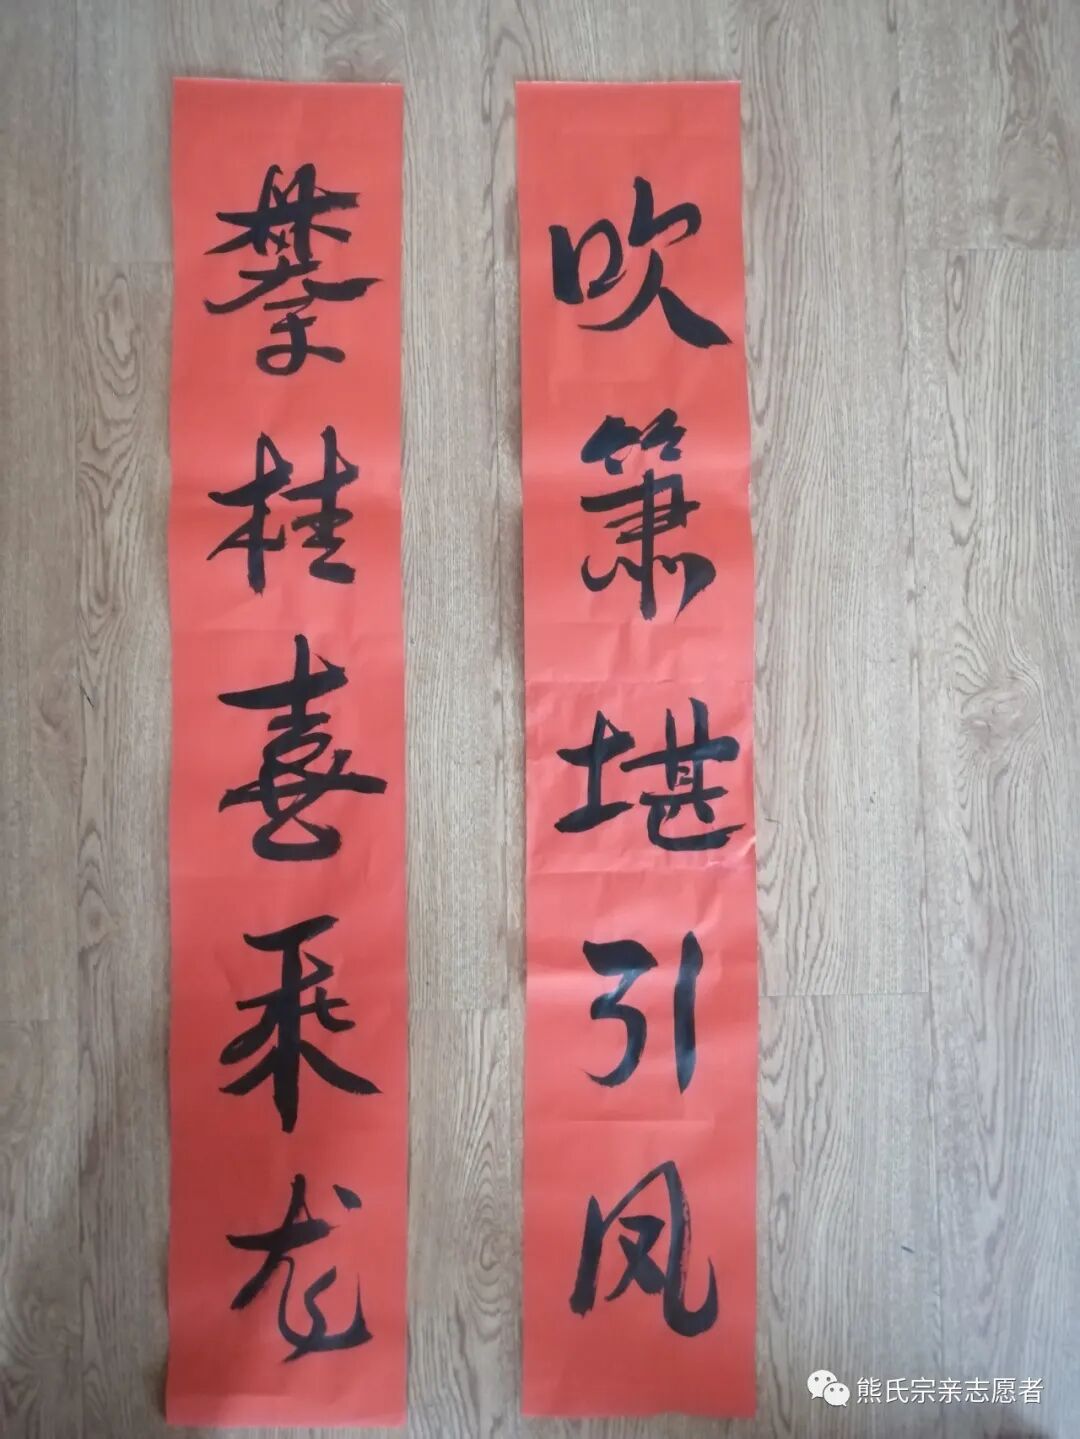 吹箫堪引凤
攀桂喜乘龙
熊氏宗亲志愿者